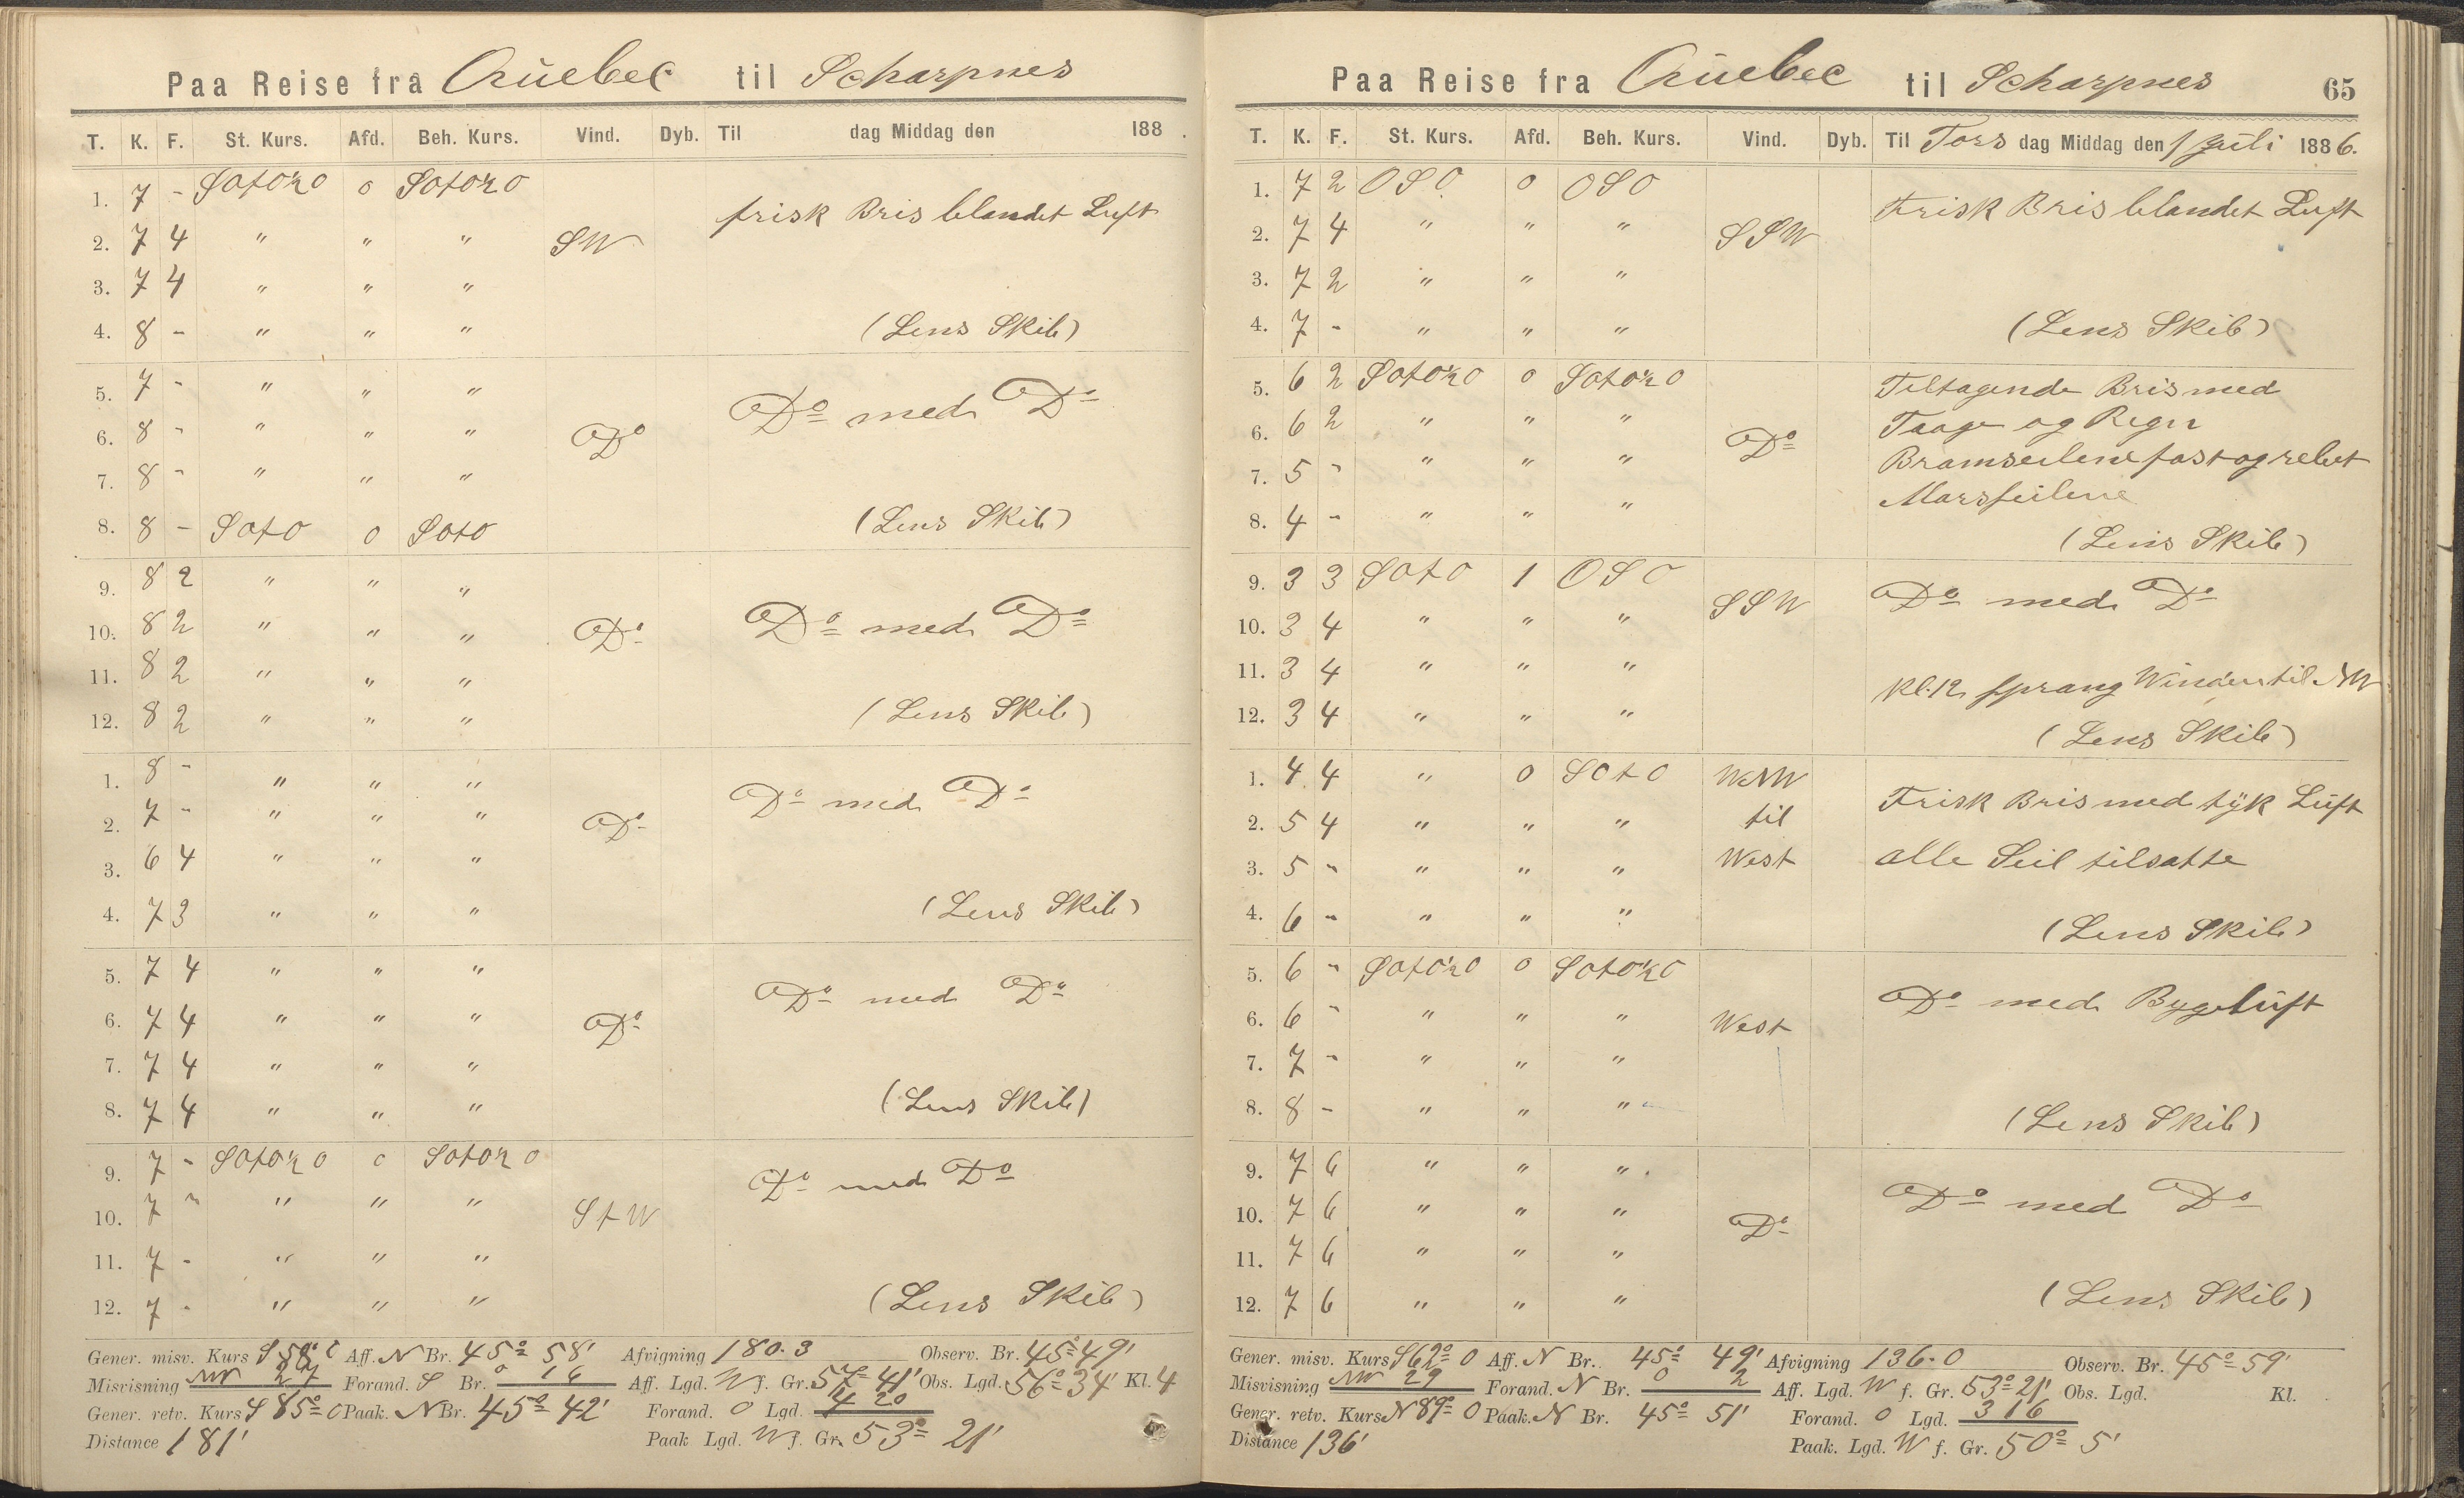 Paa Reise fra Quebec til Scharpnes
T. K. F. St. Kurs. Afd. Beh. Kurs. Vind. Dyb. Til dag Middag den 188 .
1. 7 - SOtO½O 0 SOtO½O
frisk Bris blandet Luft
2. 7 4 " " " SW
3. 7 4 " " "
4. 8 - " " " (Lens Skib)
5. 7 - " " "
Do med Do
6. 8 - " " " Do
7. 8 - " " "
8. 8 - SOtO 0 SOtO (Lens Skib)
9. 8 2 " " "
10. 8 2 " " " Do Do med Do
11. 8 2 " " "
12. 8 2 " " " (Lens Skib)
1. 8 - " " " Do med Do
2. 7 - " " " Do
3. 6 4 " " "
4. 7 3 " " " (Lens Skib)
5. 7 4 " " " Do med Do
6. 7 4 " " " Do
7. 7 4 " " "
8. 7 4 " " " (Lens Skib)
9. 7 - SOtO½O 0 SOtO½O Do med Do
10. 7 - " " " StW
11. 7 - " " "
12. 7 - " " " (Lens Skib)
Gener. misv. Kurs S 58° O Aff. N Br. 45° 58' Afvigning 180.3 Observ. Br. 45° 49'
Misvisning NW 27 Forand. S Br. 0 16 Aff. Lgd. W f. Gr. 57° 41' Obs. Lgd. 56° 34' Kl. 4
Gener. retv. Kurs S 85° O Paak. N Br. 45° 42' Forand. O Lgd. 4 20
Distance 181' Paak Lgd. W f. Gr. 53° 21'
Paa Reise fra Quebec til Scharpnes 65
T. K. F. St. Kurs. Afd. Beh. Kurs. Vind. Dyb. Til Tors dag Middag den 1 Juli 1886.
1. 7 2 OSO 0 OSO Frisk Bris blandet Luft
2. 7 4 " " " SSW
3. 7 2 " " "
4. 7 - " " " (Lens Skib)
5. 6 2 SOtO½O 0 SOtO½O Tiltagende Bris med
6. 6 2 " " " Do Taage og Regn
7. 5 - " " " Bramseilene fast og rebet
8. 4 - " " " Marsseilene
(Lens Skib)
9. 3 3 SOtO 1 OSO Do med Do
10. 3 4 " " " SSW
11. 3 4 " " " Kl. 12 sprang Winden til NW
12. 3 4 " " " (Lens Skib)
1. 4 4 " 0 SOtO WNW
2. 5 4 " " " til Frisk Bris med tyk Luft
3. 5 - " " " West alle Seil tilsatte
4. 6 - " " " (Lens Skib)
5. 6 - SOtO½O 0 SOtO½O Do med Bygeluft
6. 6 - " " " West
7. 7 - " " "
8. 8 - " " " (Lens Skib)
9. 7 6 " " " Do med Do
10. 7 6 " " " Do
11. 7 6 " " "
12. 7 6 " " " (Lens Skib)
Gener. misv. Kurs S 62° O Aff. N Br. 45° 49' Afvigning 136.0 Observ. Br. 45° 59'
Misvisning NW 29 Forand. N Br. 0 2 Aff. Lgd. W f. Gr. 53° 21' Obs. Lgd. Kl.
Gener. retv. Kurs N 89° O Paak. N Br. 45° 51' Forand. O Lgd. 3 16
Distance 136' Paak. Lgd. W f. Gr. 50° 5'